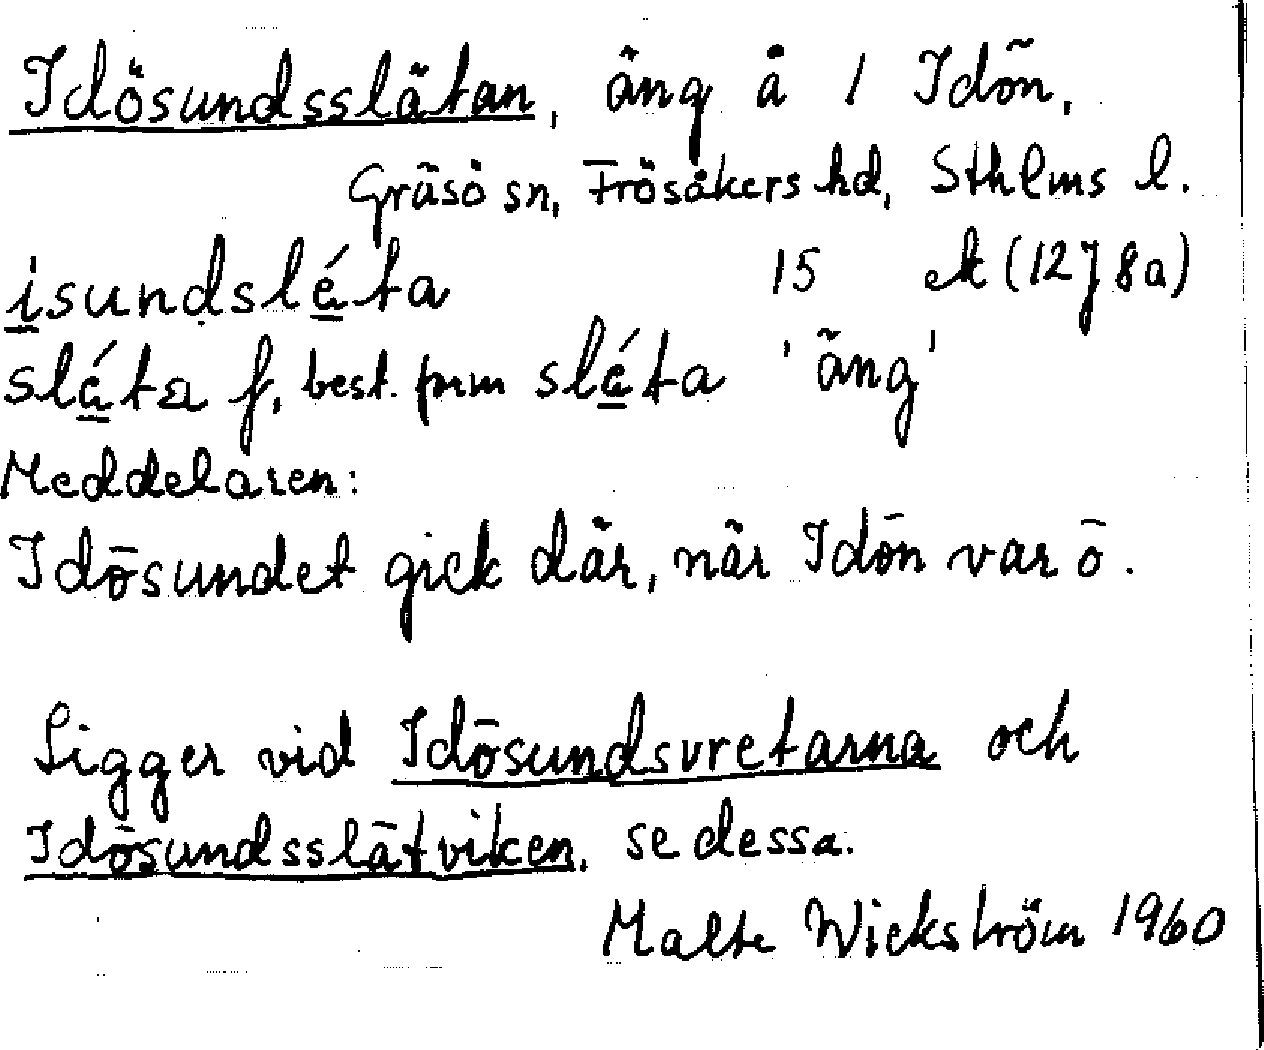 Idösundsslätan, äng å 1 Idön,
Gräsö sn, Frösåkers hd, Sthlms l.
isundsléta 15 ek (12J8a)
sléta f, best. form sléta 'äng'
Meddelaren:
Idösundet gick där, när Idön var ö.
Ligger vid Idösundsvretarna och
Idösundsslätviken, se dessa.
Malte Wickström 1960